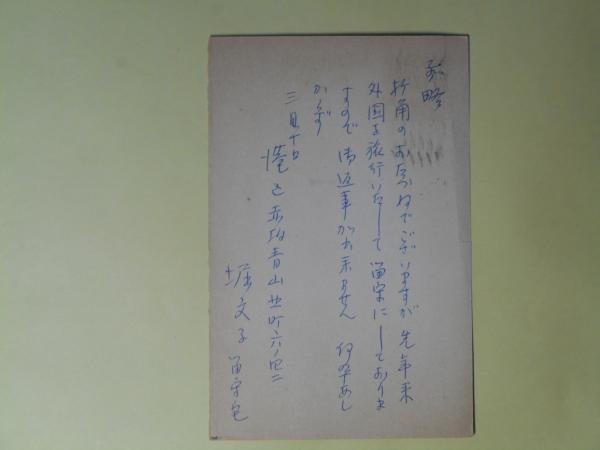 前略
折角のおたづねでございますが 先年来
外国を旅行いたして留守にしておりま
すので 御返事が出来ません 何卒あし
からず
三月十日
港区赤坂青山北町六ノ四二
堀文子 留守宅